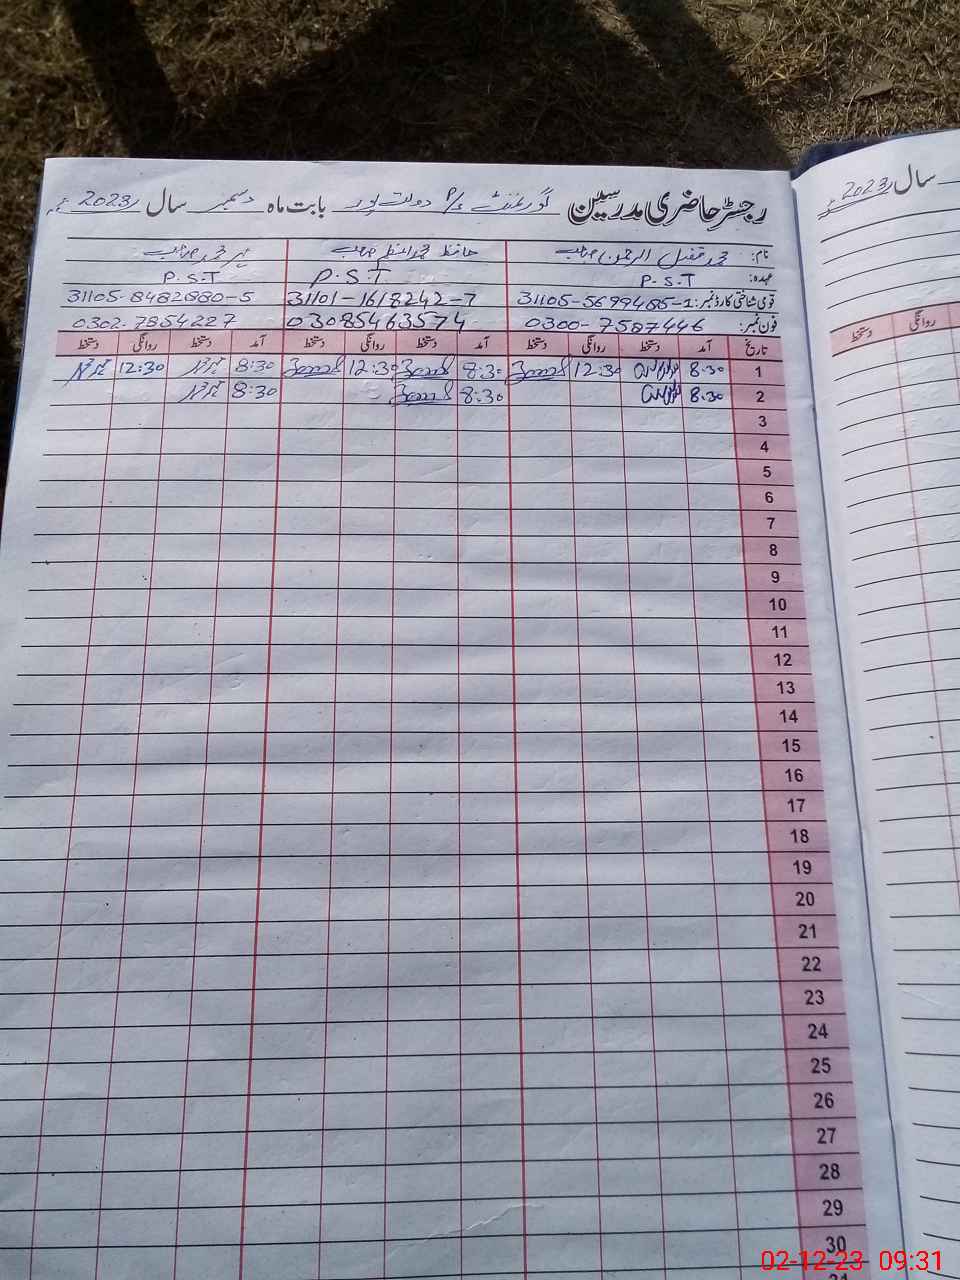 رجسٹر حاضری مدرسین گورنمنٹ P/S دولت پور بابت ماہ دسمبر سال 2023ء
نام: محمد فضل الرحمن صاحب حافظ محمد صاحب محمد صاحب
عہدہ: P.S.T P.S.T P.S.T
قومی شناختی کارڈ نمبر: 31105-5699485-1 31101-1618242-7 31105-8482880-5
فون نمبر: 0300-7587446 03085463574 0302-7854227
تاریخ آمد دستخط روانگی دستخط آمد دستخط روانگی دستخط آمد دستخط روانگی دستخط
1 8:30 12:30 8:30 12:30 8:30 12:30
2 8:30 8:30 8:30
3
4
5
6
7
8
9
10
11
12
13
14
15
16
17
18
19
20
21
22
23
24
25
26
27
28
29
30
سال 2023ء
روانگی دستخط
02-12-23 09:31